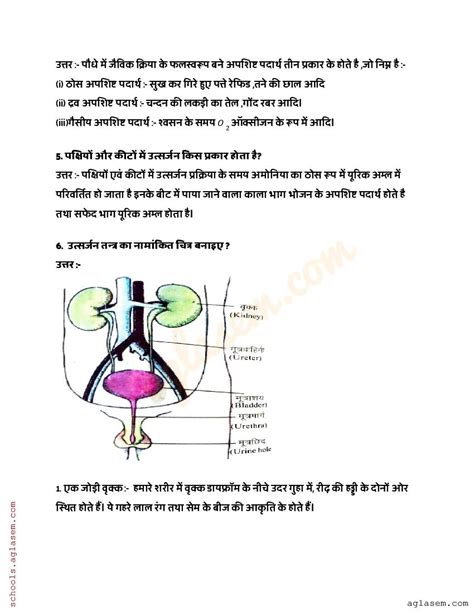 उत्तर :- पौधे में जैविक क्रिया के फलस्वरूप बने अपशिष्ट पदार्थ तीन प्रकार के होते है ,जो निम्न है :-
(i) ठोस अपशिष्ट पदार्थ :- सुख कर गिरे हुए पत्ते रेफिड ,तने की छाल आदि
(ii) द्रव अपशिष्ट पदार्थ :- चन्दन की लकड़ी का तेल ,गोंद रबर आदि।
(iii)गैसीय अपशिष्ट पदार्थ :- श्वसन के समय O 2 ऑक्सीजन के रूप में आदि।
5. पक्षियों और कीटों में उत्सर्जन किस प्रकार होता है?
उत्तर :- पक्षियों एवं कीटों में उत्सर्जन प्रक्रिया के समय अमोनिया का ठोस रूप में यूरिक अम्ल में
परिवर्तित हो जाता है इनके बीट में पाया जाने वाला काला भाग भोजन के अपशिष्ट पदार्थ होते है
तथा सफेद भाग यूरिक अम्ल होता है।
6. उत्सर्जन तन्त्र का नामांकित चित्र बनाइए ?
उत्तर :-
वृक्क
(Kidney)
मूत्रवाहिनी
(Ureter)
मूत्राशय
(Bladder)
मूत्रमार्ग
(Urethra)
मूत्रछिद्र
(Urine hole
1. एक जोड़ी वृक्क :- हमारे शरीर में वृक्क डायफ्रॉम के नीचे उदर गुहा में, रीढ़ की हड्डी के दोनों ओर
स्थित होते हैं। ये गहरे लाल रंग तथा सेम के बीज की आकृति के होते हैं।
schools.aglasem.com
aglasem.com
aglasem.com